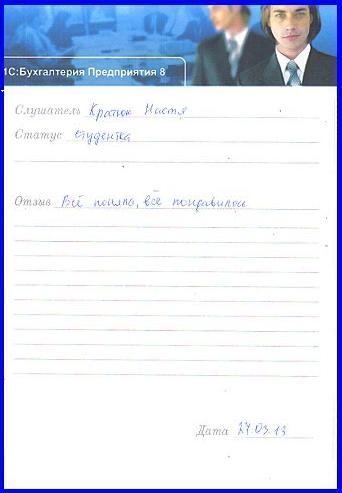 1С:Бухгалтерия Предприятия 8
Слушатель Кратюк Настя
Статус студентка
Отзыв Всё понятно, всё понравилось
Дата 27.03.13